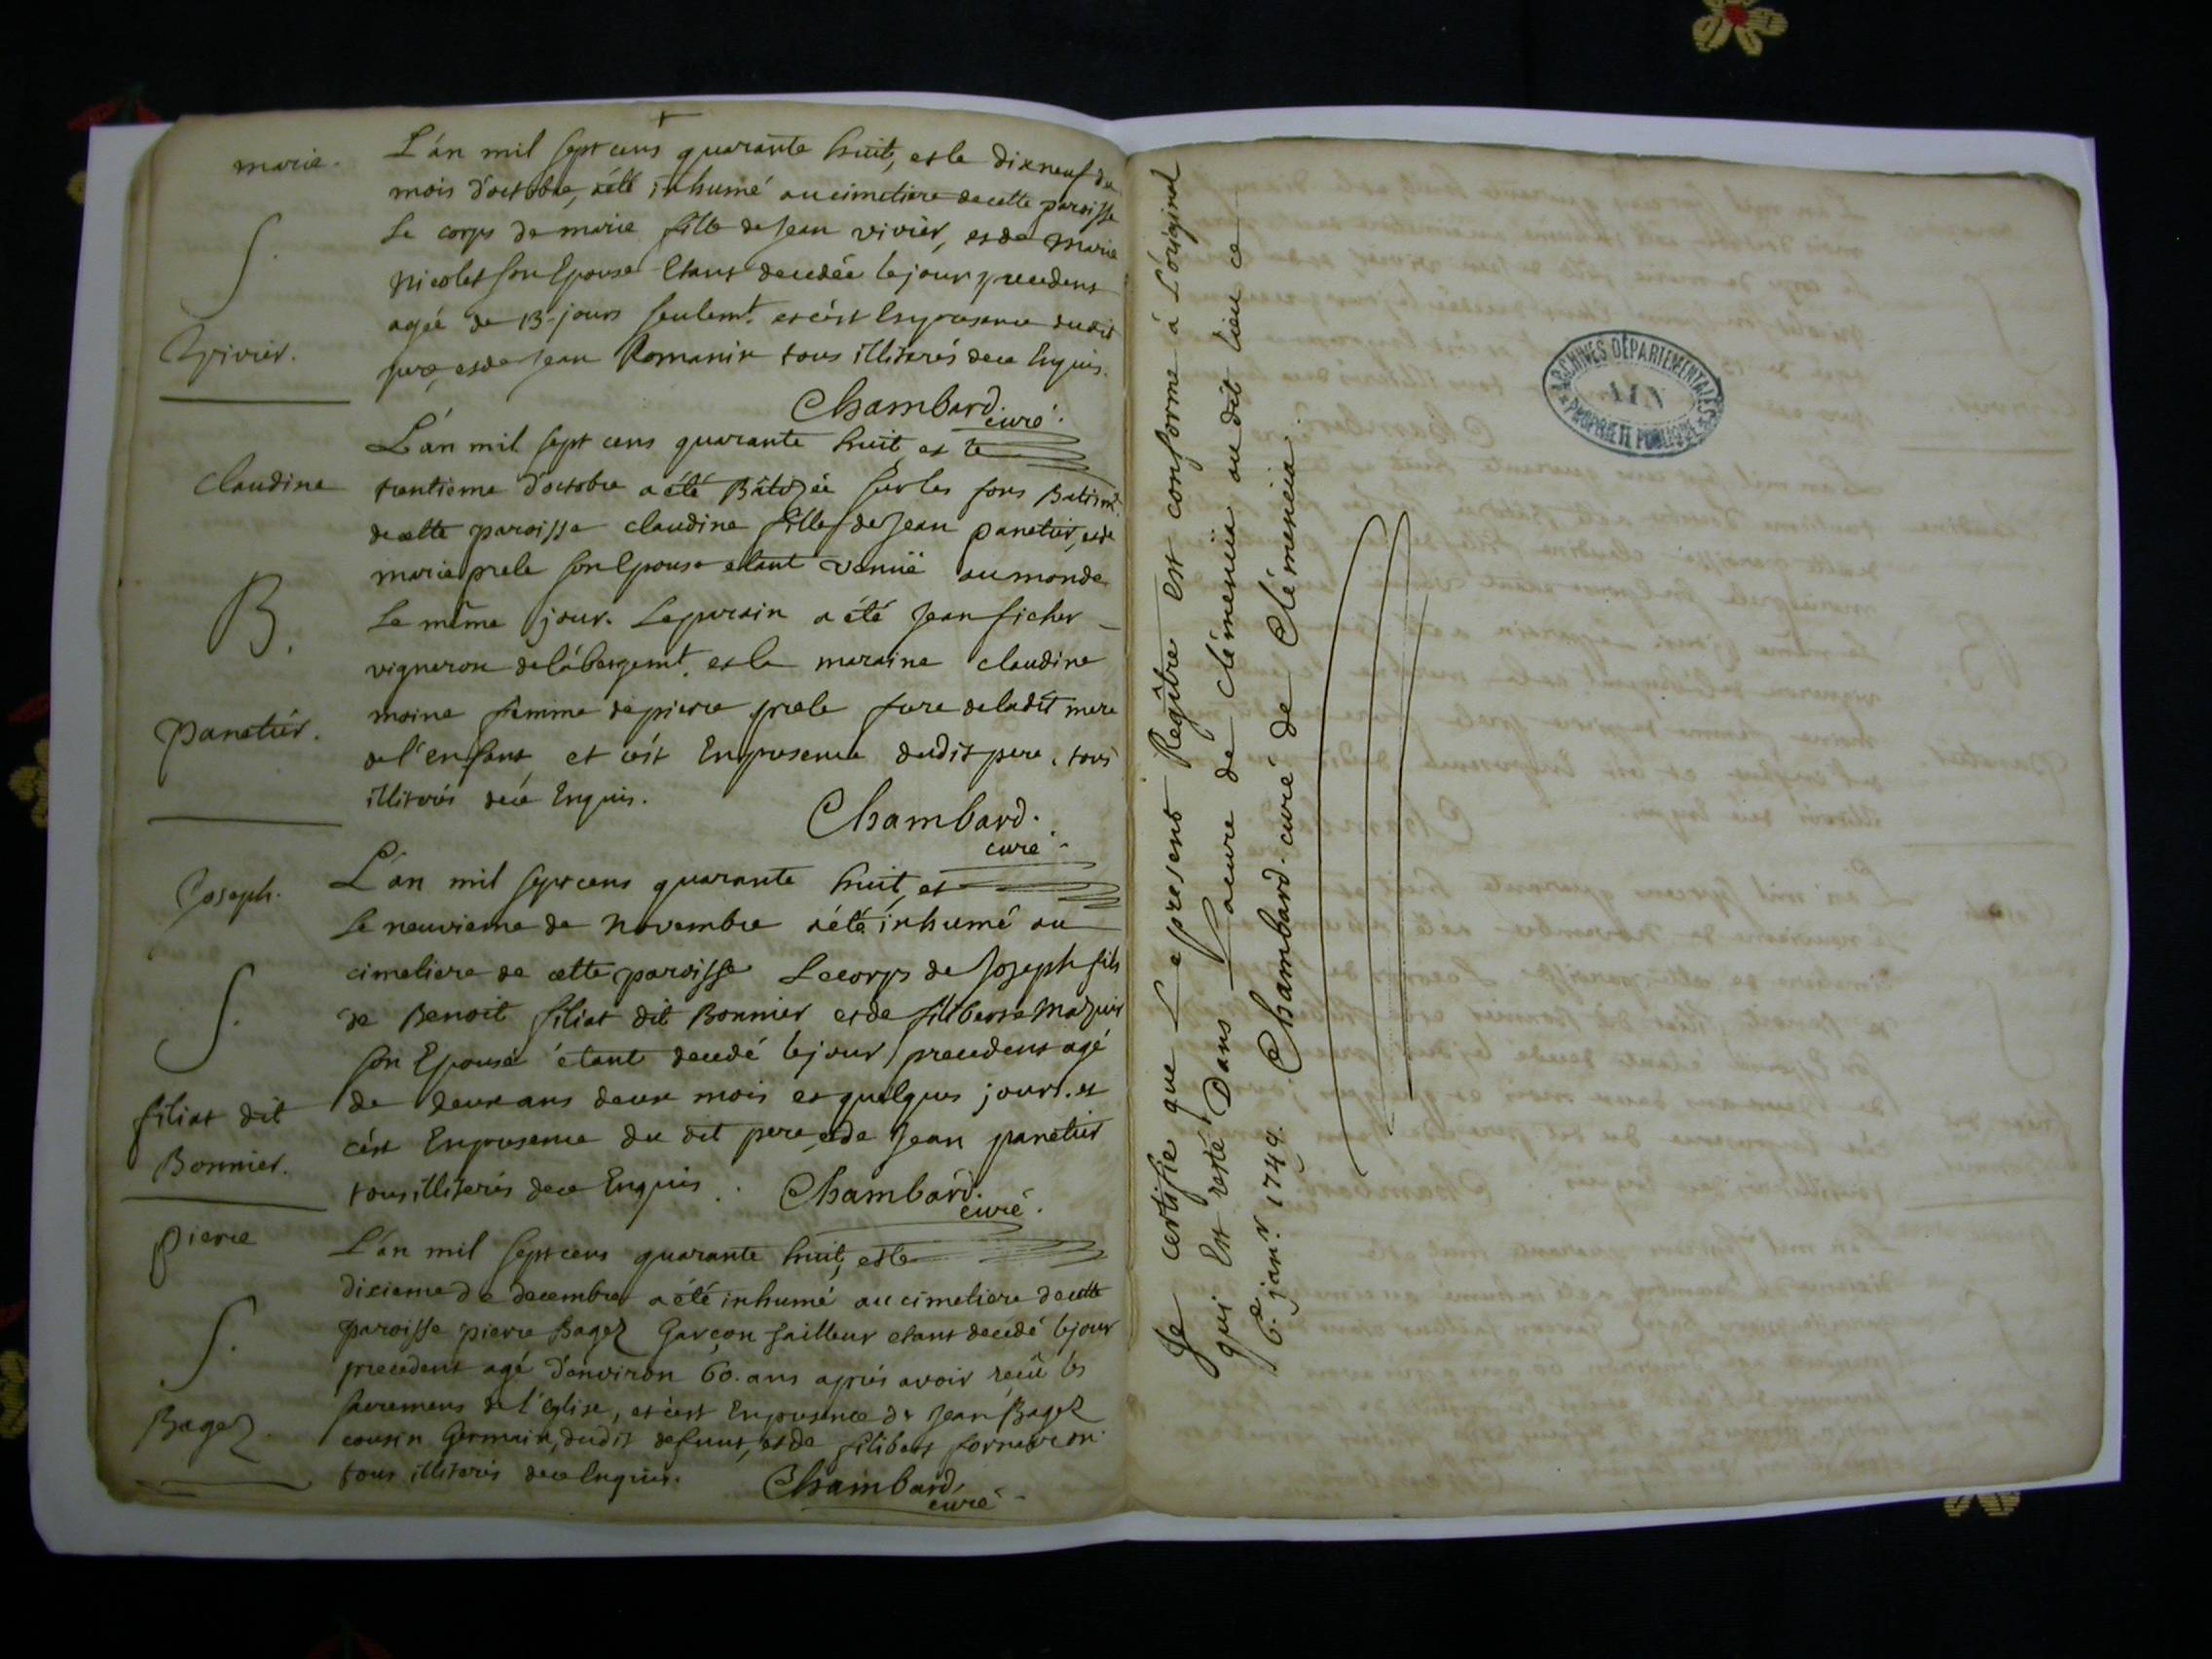 marie.
S.
vivier.
L'an mil sept cens quarante huit, et le dixneuf du
mois d'octobre, a été inhumé au cimetiere de cette paroisse
Le corps de marie fille de Jean vivier, et de Marie
Nicolet son Epouse Etant decedée le jour precedent
agée de 13 jours seulemt. et c'est En presence du dit
pere, et de Jean Romanin tous illiterés de ce Enquis.
Chambard.
curé.
claudine
B.
Panetier.
L'an mil sept cens quarante huit et le
trentieme d'octobre a été Bâtizée sur les fons Batism.
de cette paroisse claudine fille de Jean panetier, et de
marie prele son Epouse etant venuë au monde
Le même jour. Le parain a été Jean ficher
vigneron de l'abergemt. et la maraine claudine
moine femme de pierre prele fure de ladit mere
de l'enfant et c'est En presence dudit pere, tous
illiterés de cé Enquis.
Chambard.
curé.
Joseph.
S.
filiat dit
Bonnier.
L'an mil sept cens quarante huit, et
Le neuvieme de Novembre a été inhumé au
cimetiere de cette paroisse Le corps de Joseph fils
de Benoit filiat dit Bonnier et de filiberte Mazuir
son Epouse étant decedé le jour precedent agé
de deux ans deux mois et quelques jours. et
c'est En presence du dit pere, et de Jean panetier
tous illiterés de ce Enquis. Chambard.
curé.
pierre
S.
Bagez.
L'an mil sept cens quarante huit, et le
dixieme de decembre a été inhumé au cimetiere de cette
paroisse pierre Bagez Garçon tailleur etant decedé le jour
precedent agé d'environ 60. ans aprés avoir reçû les
sacremens de l'église, et c'est En presence de Jean Bagez
cousin Germain, dudit defunt, et de filibert
tous illiterés de ce Enquis. Chambard,
curé
Je certifie que Le present Regître est conforme à L'original
qui Est resté Dans La cure de Clémencia au dit lieu ce
6e. janr. 1749. Chambard. curé de Clémencia.
ARCHIVES DÉPARTEMENTALES
AIN
PROPRIÉTÉ PUBLIQUE